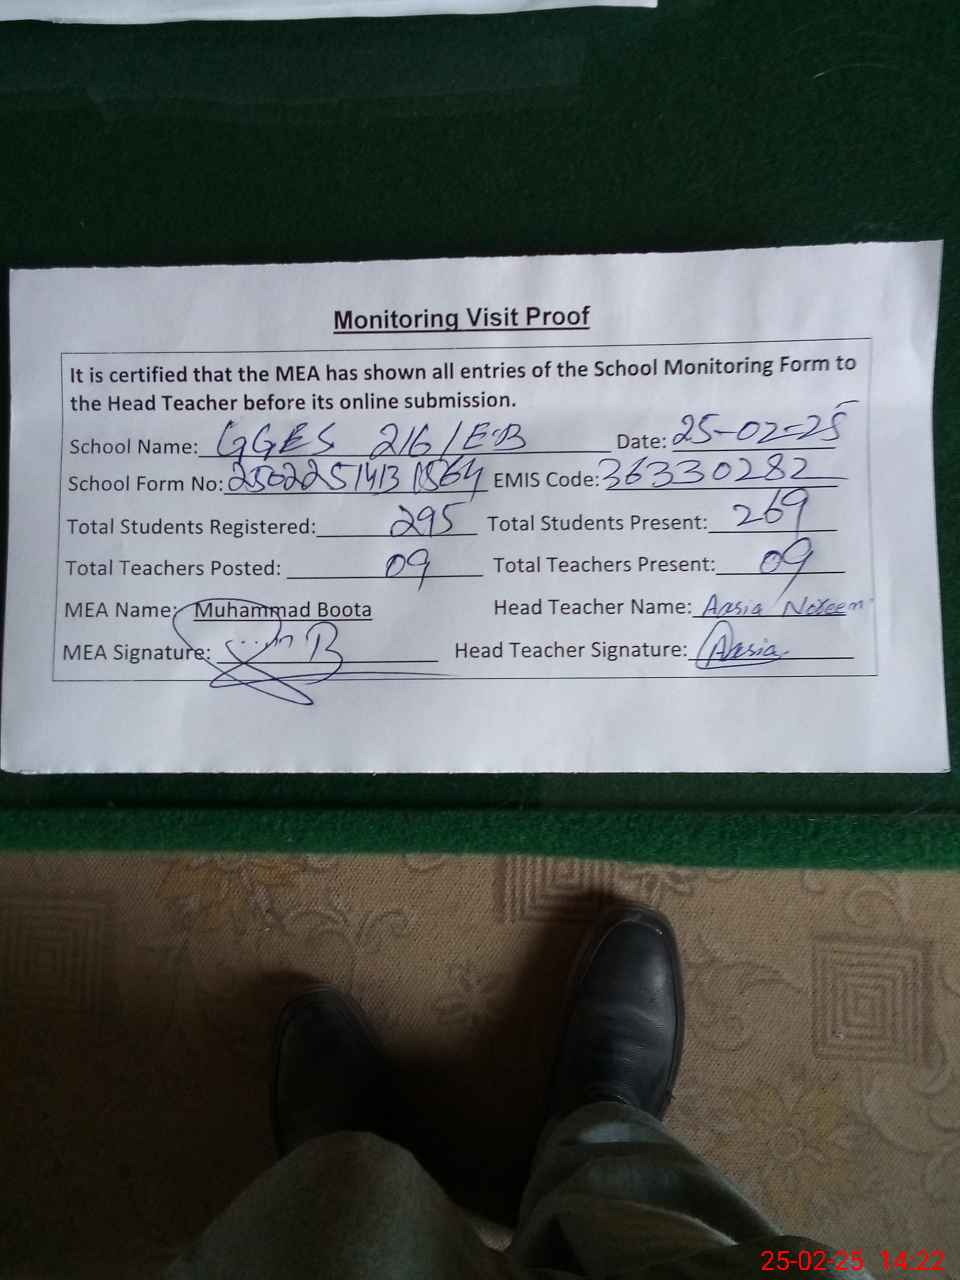 Monitoring Visit Proof
It is certified that the MEA has shown all entries of the School Monitoring Form to
the Head Teacher before its online submission.
School Name: GGES 216/E-B Date: 25-02-25
School Form No: EMIS Code: 36330282
Total Students Registered: 295 Total Students Present: 269
Total Teachers Posted: 09 Total Teachers Present: 09
MEA Name: Muhammad Boota Head Teacher Name:
MEA Signature: Head Teacher Signature:
25-02-25 14:22